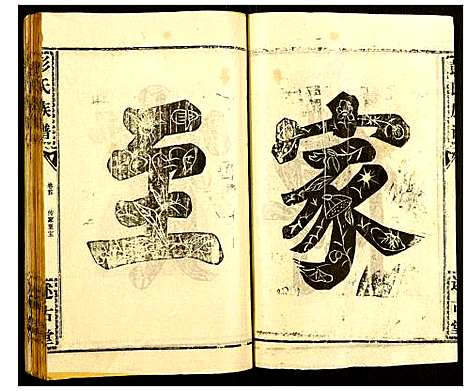 家
至
彭氏族譜
卷首 传家至宝
述古堂